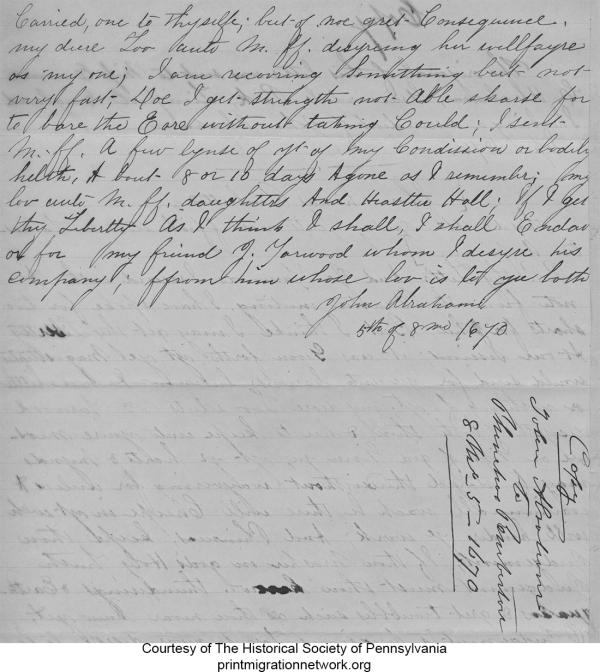 Carried, one to thyselfe; but of noe gret Consequence.
my diere Lov unto M. ff. desyreing her wellfayre
as my one; I am recovring Something but not
very fast; Doe I get strength not Able skarse for
to bare the Eare without taking Could; I sent
M. ff. A few lynse of yt of my Condission or bodily
helth, A bout 8 or 10 days Agone as I remember; my
lov unto M. ff. daughters And Heasther Hall; If I get
thy Libertty As I think I shall, I shall Endav
or for my friend J. Yarwood whom I desyre his
company; ffrom him whose lov is to you both
John Abraham
5th of 8 mo 1670
Copy
John Abraham
to
Phinehas Pemberton
8 Mo. 5 - 1670
Courtesy of The Historical Society of Pennsylvania
printmigrationnetwork.org